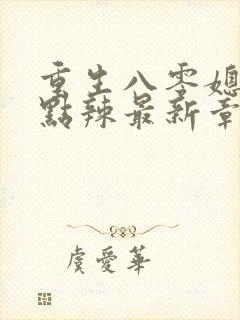 重生八零媳
點辣最新章
虞愛華